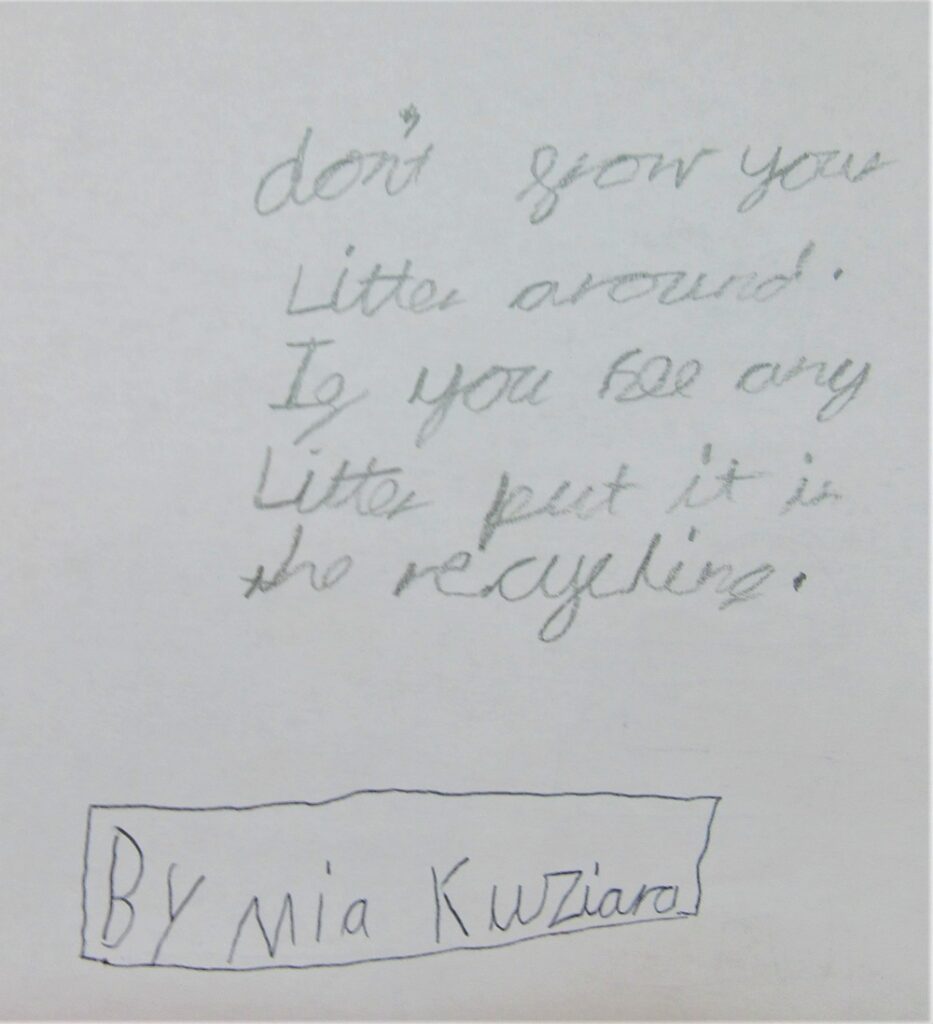 don't grow your
Litter around.
If you see any
Litter put it in
the recycling.
By Mia Kuziara